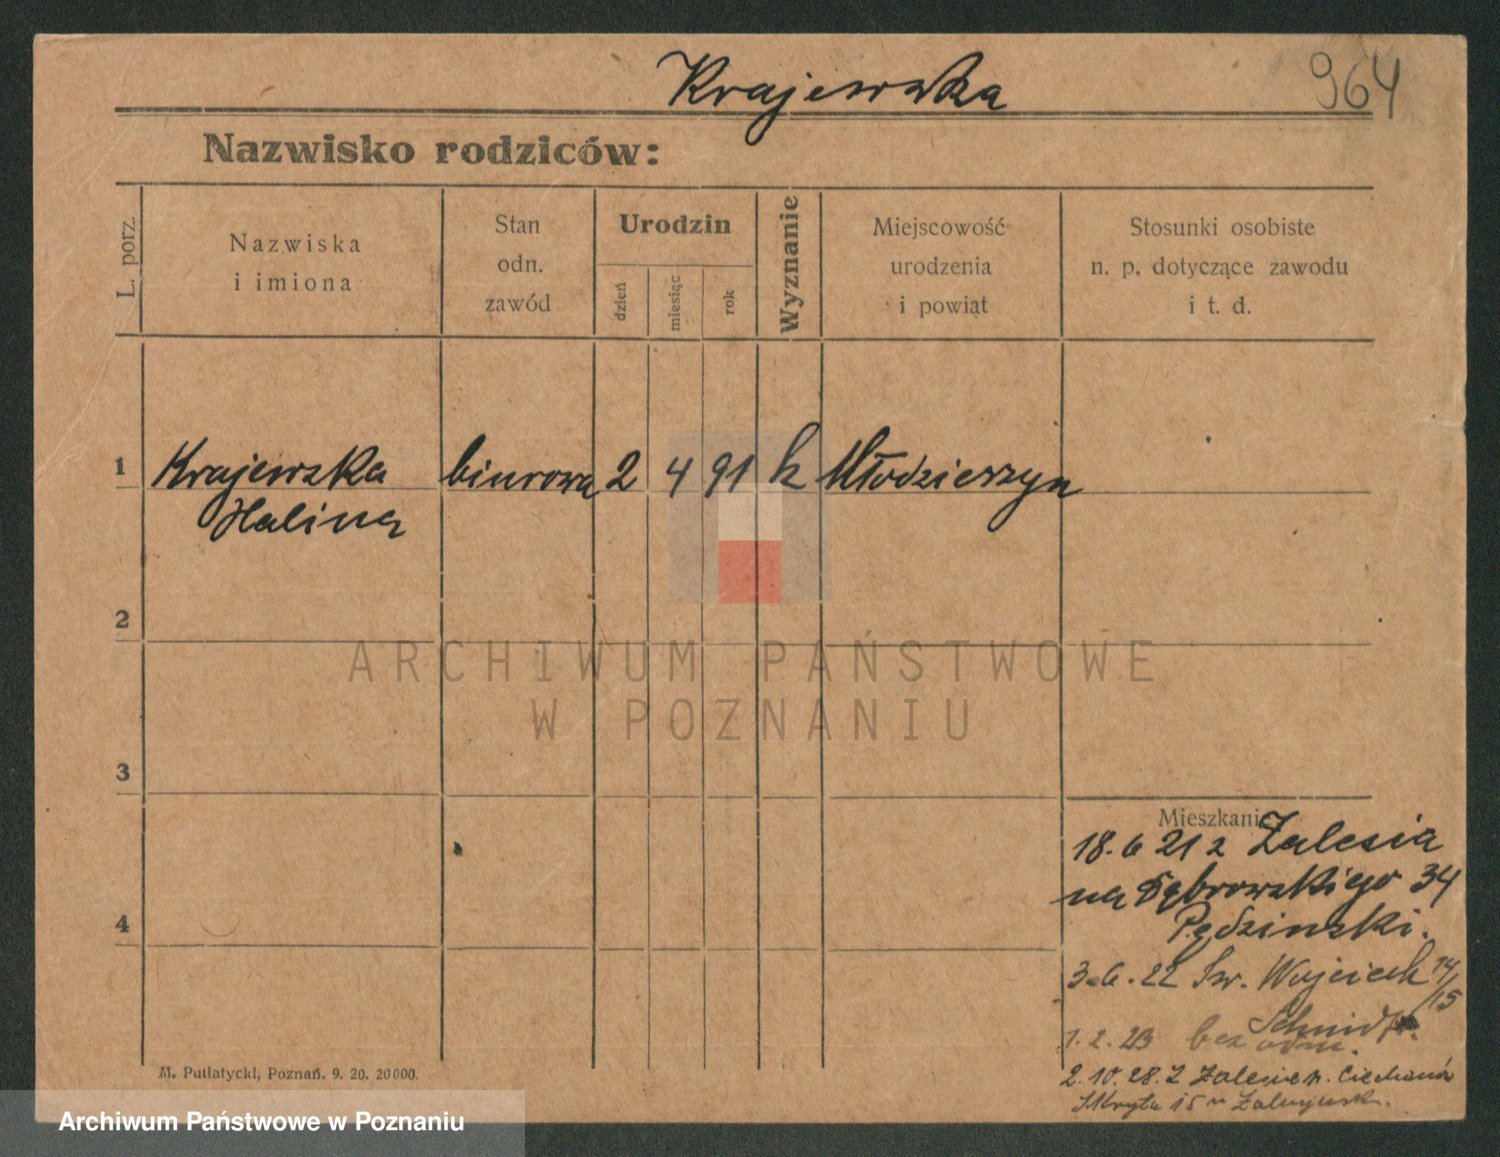 Krajewska
964
Nazwisko rodziców:
L. porz.
Nazwiska
i imiona
Stan
odn.
zawód
Urodzin
dzień
miesiąc
rok
Wyznanie
Miejscowość
urodzenia
i powiat
Stosunki osobiste
n. p. dotyczące zawodu
i t. d.
1 Krajewska biurowa 2 4 91 k Młodzierzyn
Halina
2
3
4
Mieszkanie
18.6 21 z Zalesia
na Dąbrowskiego 34
Pędzinski.
3.6.22 Św. Wojciech 14/15
Schmidt
1.2.23 bez odm.
2.10.28. Z Zalesie p. Ciechanów
Skryta 15
M. Putiatycki, Poznań. 9. 20. 20000.
ARCHIWUM PAŃSTWOWE
W POZNANIU
Archiwum Państwowe w Poznaniu